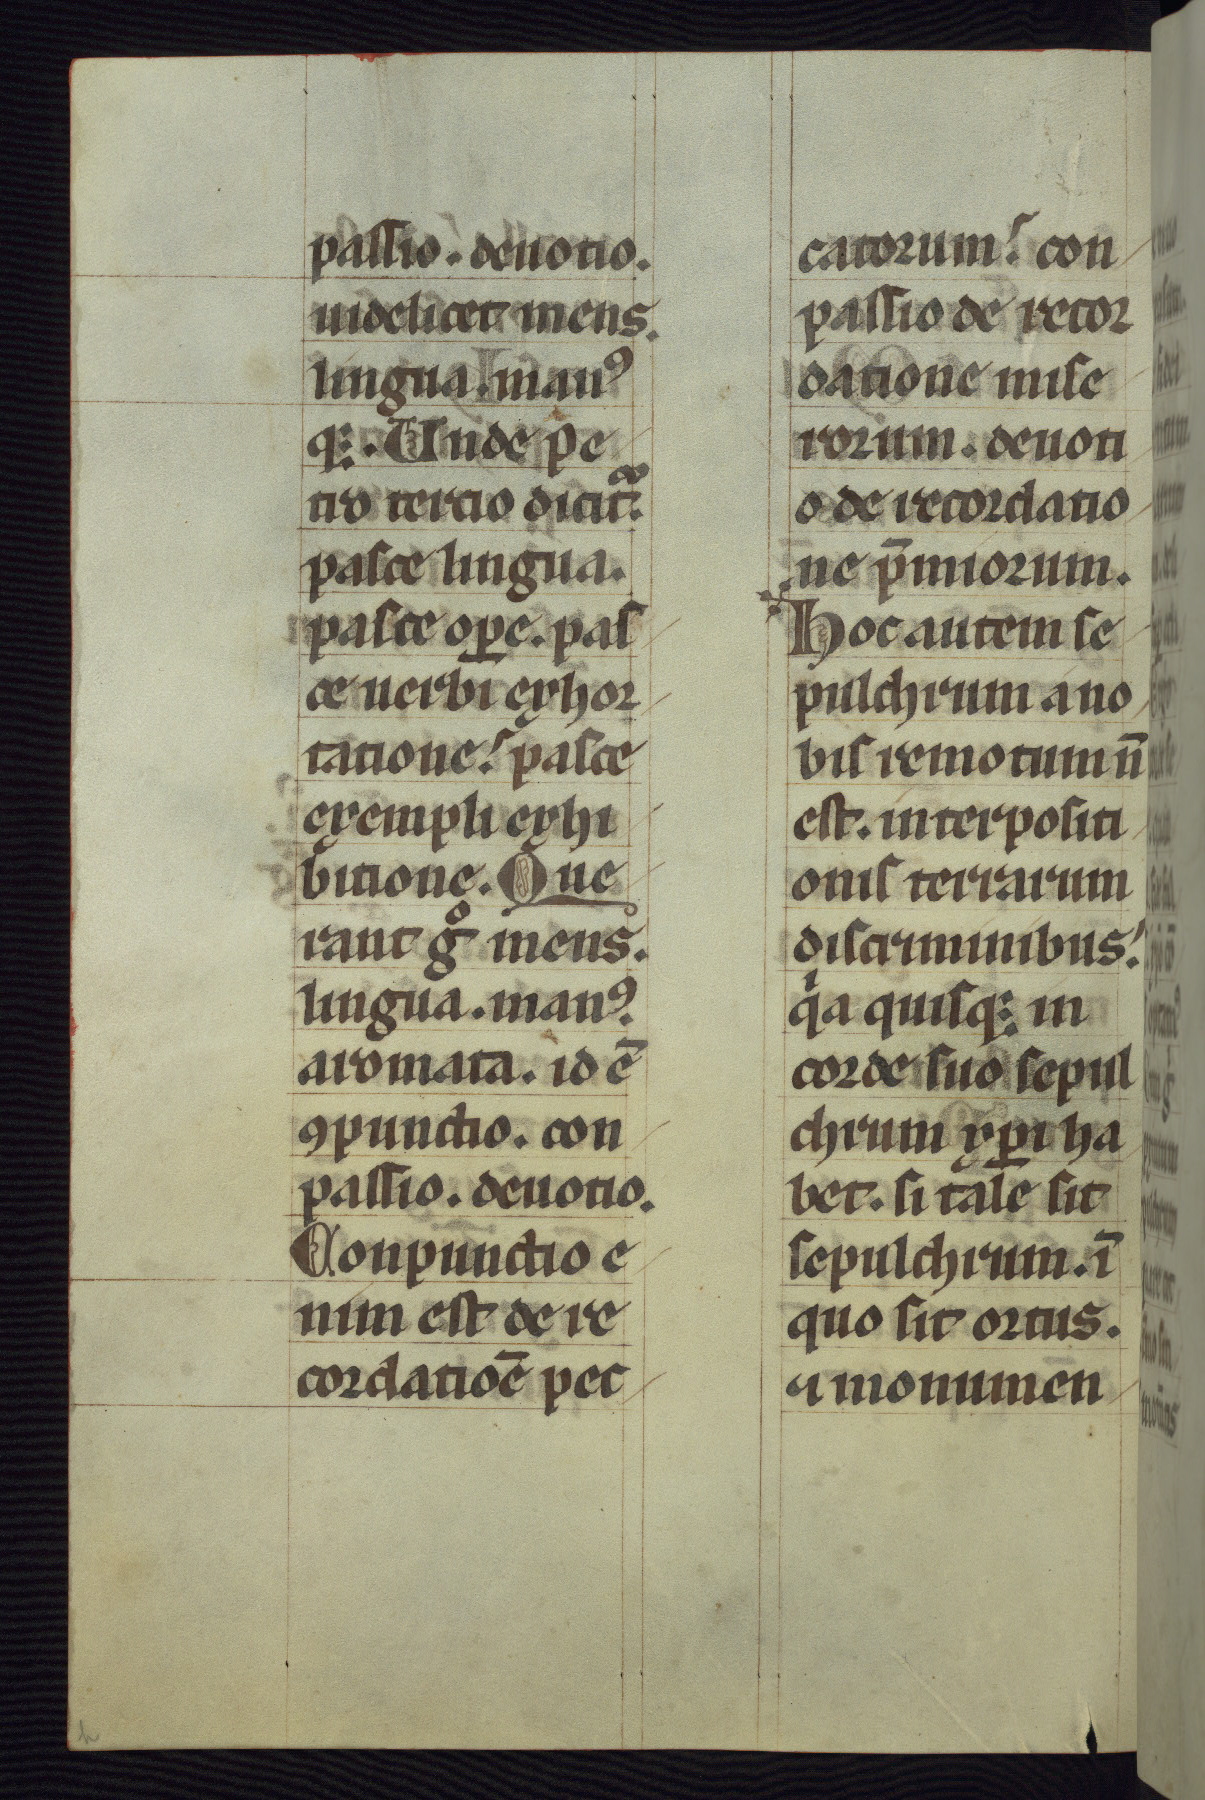 paſſio. deuotio.
uidelicet mens.
lingua. manꝰ
qꝫ. Unde pe
tro tercio dicit᷑.
paſce lingua.
paſce oꝑe. paſ
ce uerbi exhor
tatione. paſce
exempli exhi
bitione. Que
rant gͦ mens.
lingua. manꝰ.
aromata. id ē
ꝯpunctio. con
paſſio. deuotio.
Conpunctio e
nim eſt de re
cordatioē pec
catorum. con
paſſio de recor
datione miſe
rorum. deuoti
o de recordatio
ne p̄miorum.
Hoc autem ſe
pulchrum a no
bis remotum n̄
eſt. interpoſiti
onis terrarum
discriminibus.
qͥa quiſqꝫ in
corde ſuo ſepul
chrum xp̄i ha
bet. ſi tale ſit
ſepulchrum. ī
quo ſit ortus.
⁊ monumen